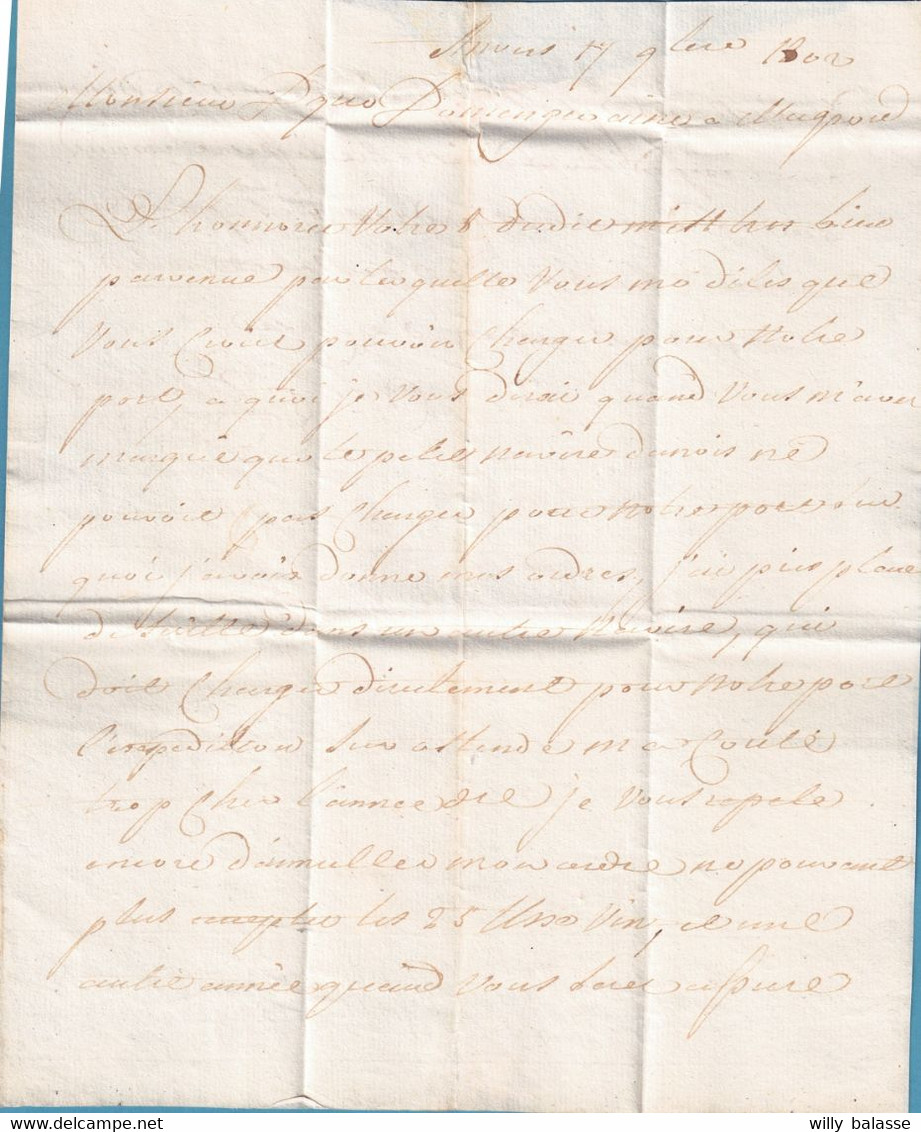 Anvers 17 9bre 1802
Monsieur Domengue ainé a
L'honnorée Votre 8 dudit m'est bien
parvenue par laquelle Vous me dites que
Vous Croiet pouvoir Charger pour Notre
port, a quoi je Vous dirai quand Vous m'avez
marqué que le petit navire danois ne
pouvoit pas Charger pour notre port sur
quoi j'avois donné mes ordres, j'ai pris place
de suitte dans un autre Navire, qui
doit Charger directement pour Notre port
l'expedition Sur ostende m'a Couté
trop Cher l'année dre je Vous repete
encore d'annuller mon ordre ne pouvant
plus accepter les 25 Vin, et une
autre année quand Vous serez assuré
willy balasse